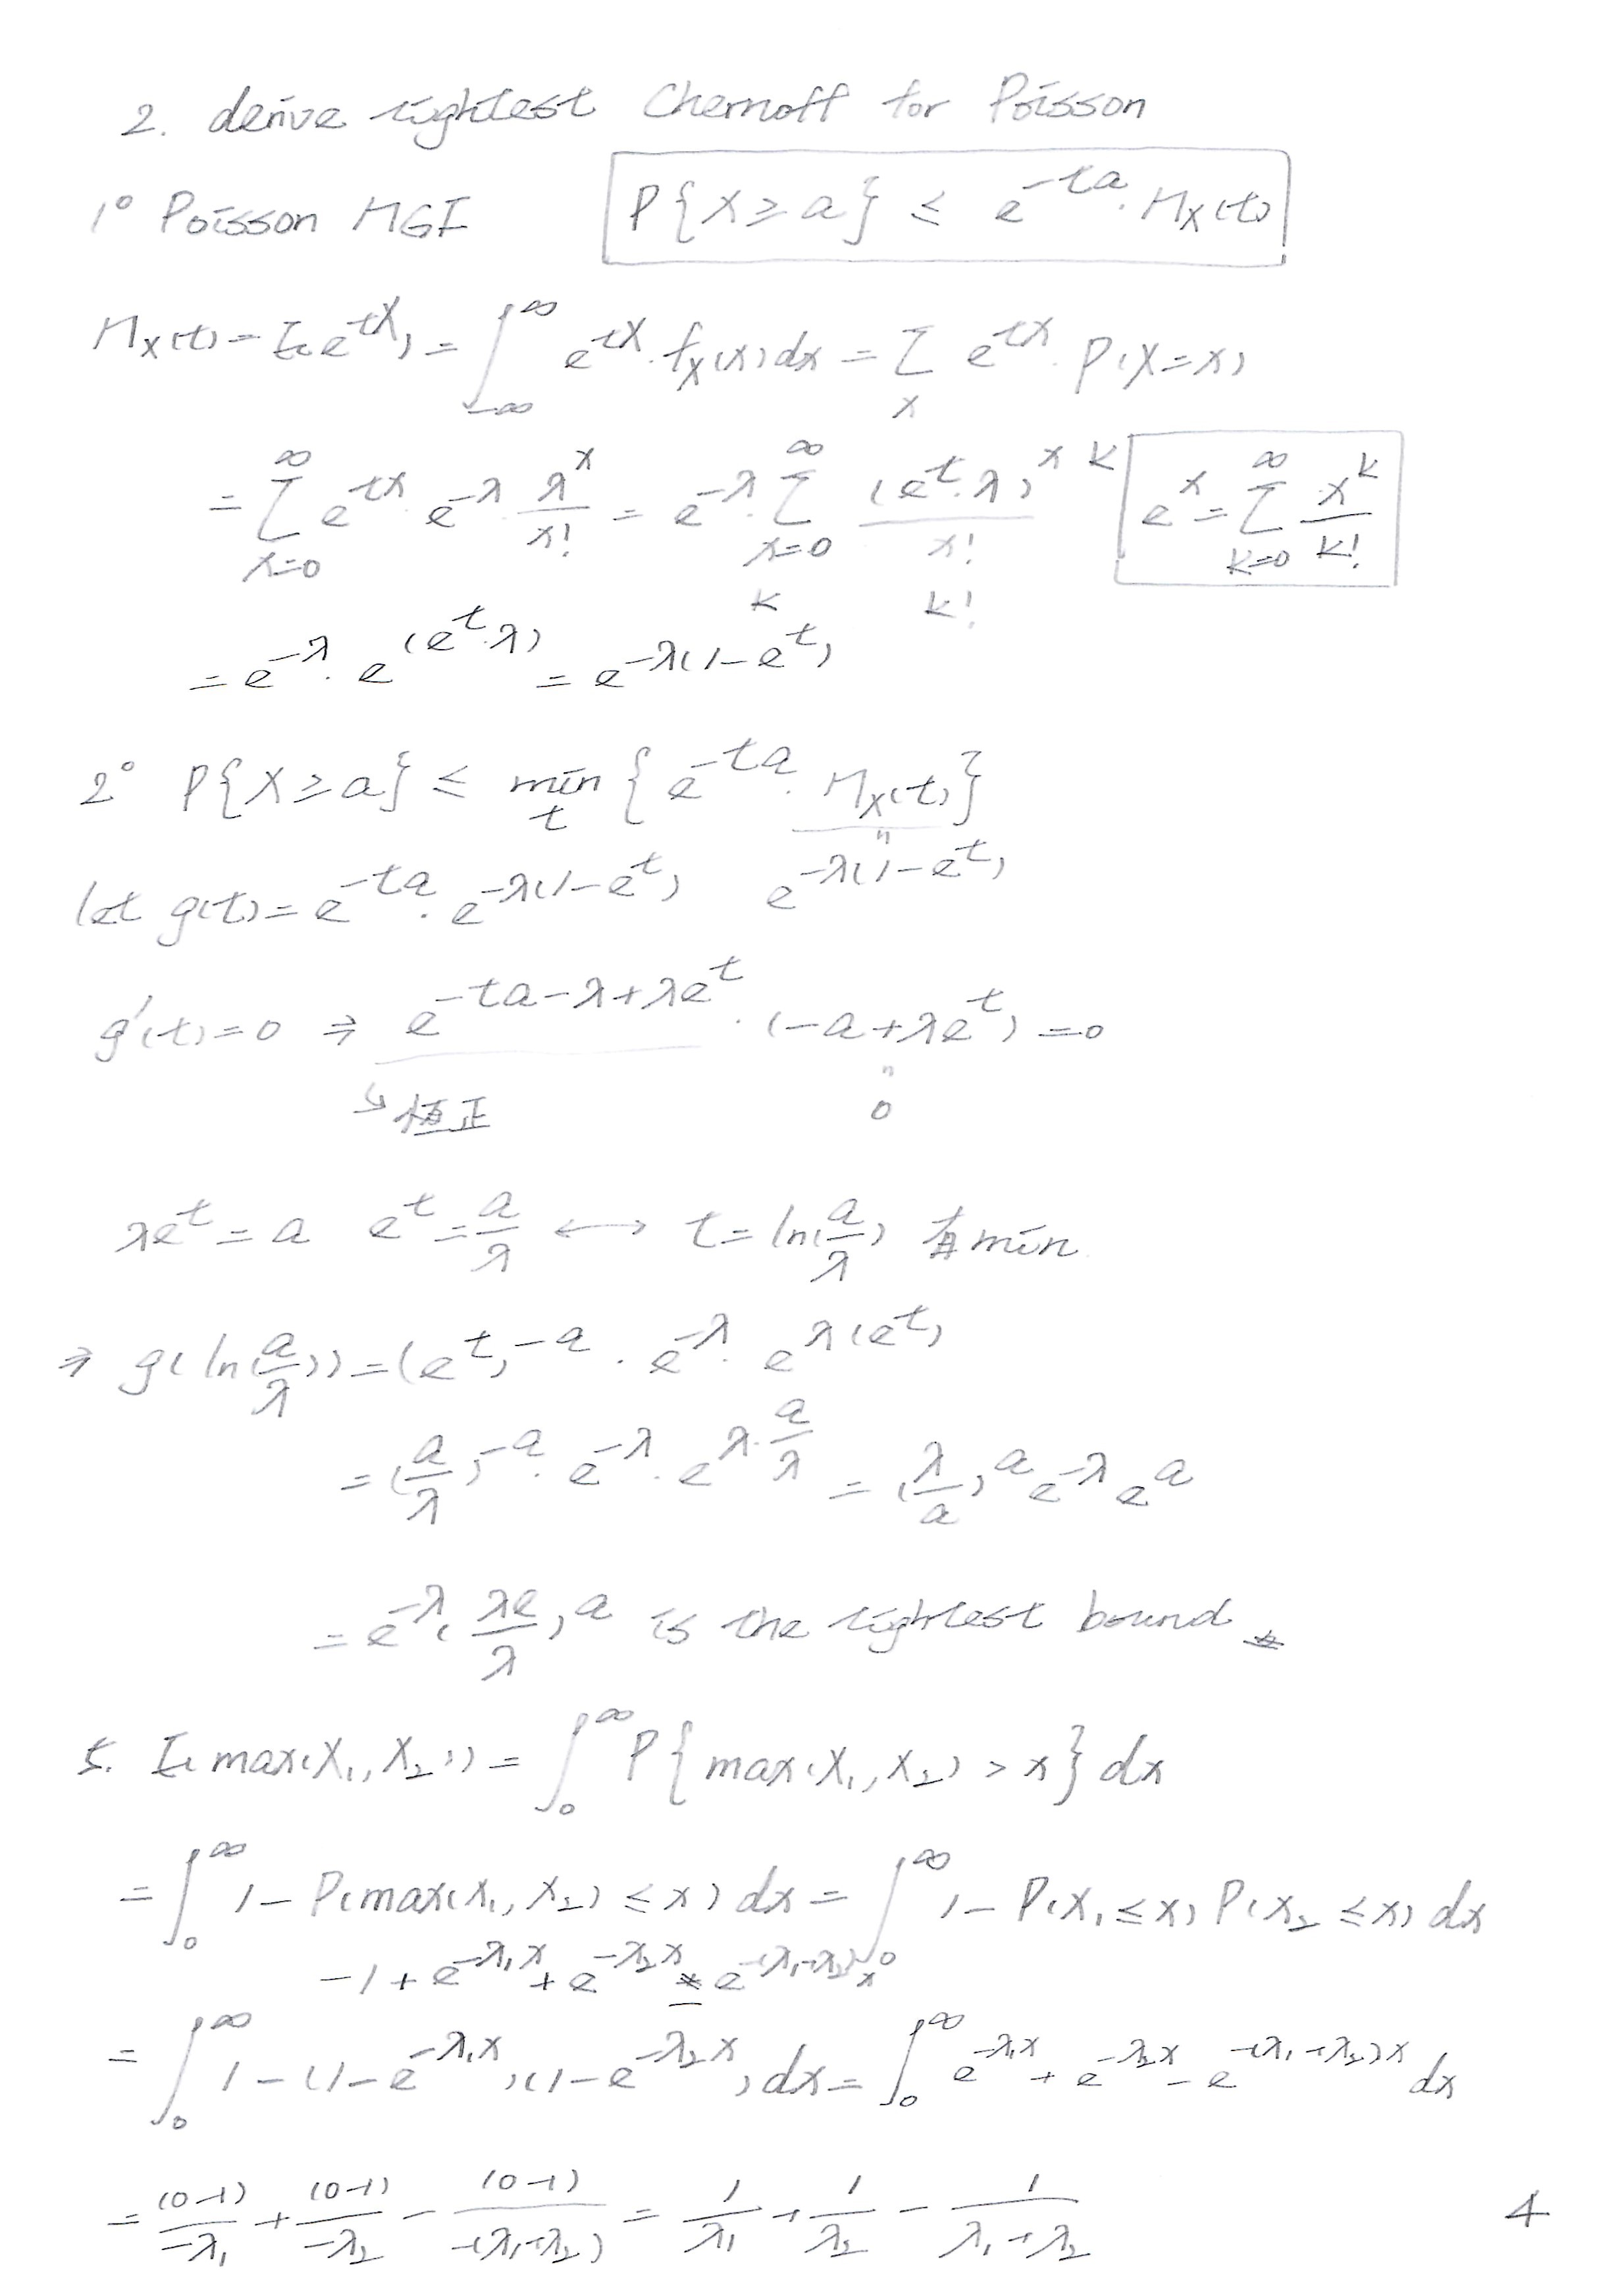 2. derive tightest Chernoff for Poisson
1° Poisson MGF P{X ≥ a} ≤ e^{-ta}·M_X(t)
M_X(t) = E(e^{tX}) = ∫_{-∞}^{∞} e^{tX}·f_X(x)dx = Σ_x e^{tx}·P(X=x)
= Σ_{x=0}^{∞} e^{tx} e^{-λ} λ^x/x! = e^{-λ}·Σ_{x=0}^{∞} (e^t·λ)^x/x! k k k! e^x = Σ_{k=0}^{∞} x^k/k!
= e^{-λ}·e^{(e^t·λ)} = e^{-λ(1-e^t)}
2° P{X ≥ a} ≤ min_t {e^{-ta}·M_X(t)}
let g(t) = e^{-ta}·e^{-λ(1-e^t)} " e^{-λ(1-e^t)}
g'(t)=0 ⇒ e^{-ta-λ+λe^t}·(-a+λe^t) = 0
↳ 恆正 " 0
λe^t = a e^t = a/λ ↔ t = ln(a/λ) 有min
⇒ g(ln(a/λ)) = (e^t)^{-a}·e^{-λ}·e^{λ(e^t)}
= (a/λ)^{-a}·e^{-λ}·e^{λ·a/λ} = (λ/a)^a e^{-λ} e^a
= e^{-λ}(λe/λ)^a is the tightest bound #
5. E(max(X₁, X₂)) = ∫_0^∞ P{max(X₁, X₂) > x} dx
= ∫_0^∞ 1 - P(max(X₁, X₂) ≤ x) dx = ∫_0^∞ 1 - P(X₁ ≤ x) P(X₂ ≤ x) dx
-1 + e^{-λ₁x} + e^{-λ₂x} - e^{-(λ₁+λ₂)x}
= ∫_0^∞ 1 - (1-e^{-λ₁x})(1-e^{-λ₂x}) dx = ∫_0^∞ e^{-λ₁x} + e^{-λ₂x} - e^{-(λ₁+λ₂)x} dx
= (0-1)/-λ₁ + (0-1)/-λ₂ - (0-1)/-(λ₁+λ₂) = 1/λ₁ + 1/λ₂ - 1/(λ₁+λ₂)
4